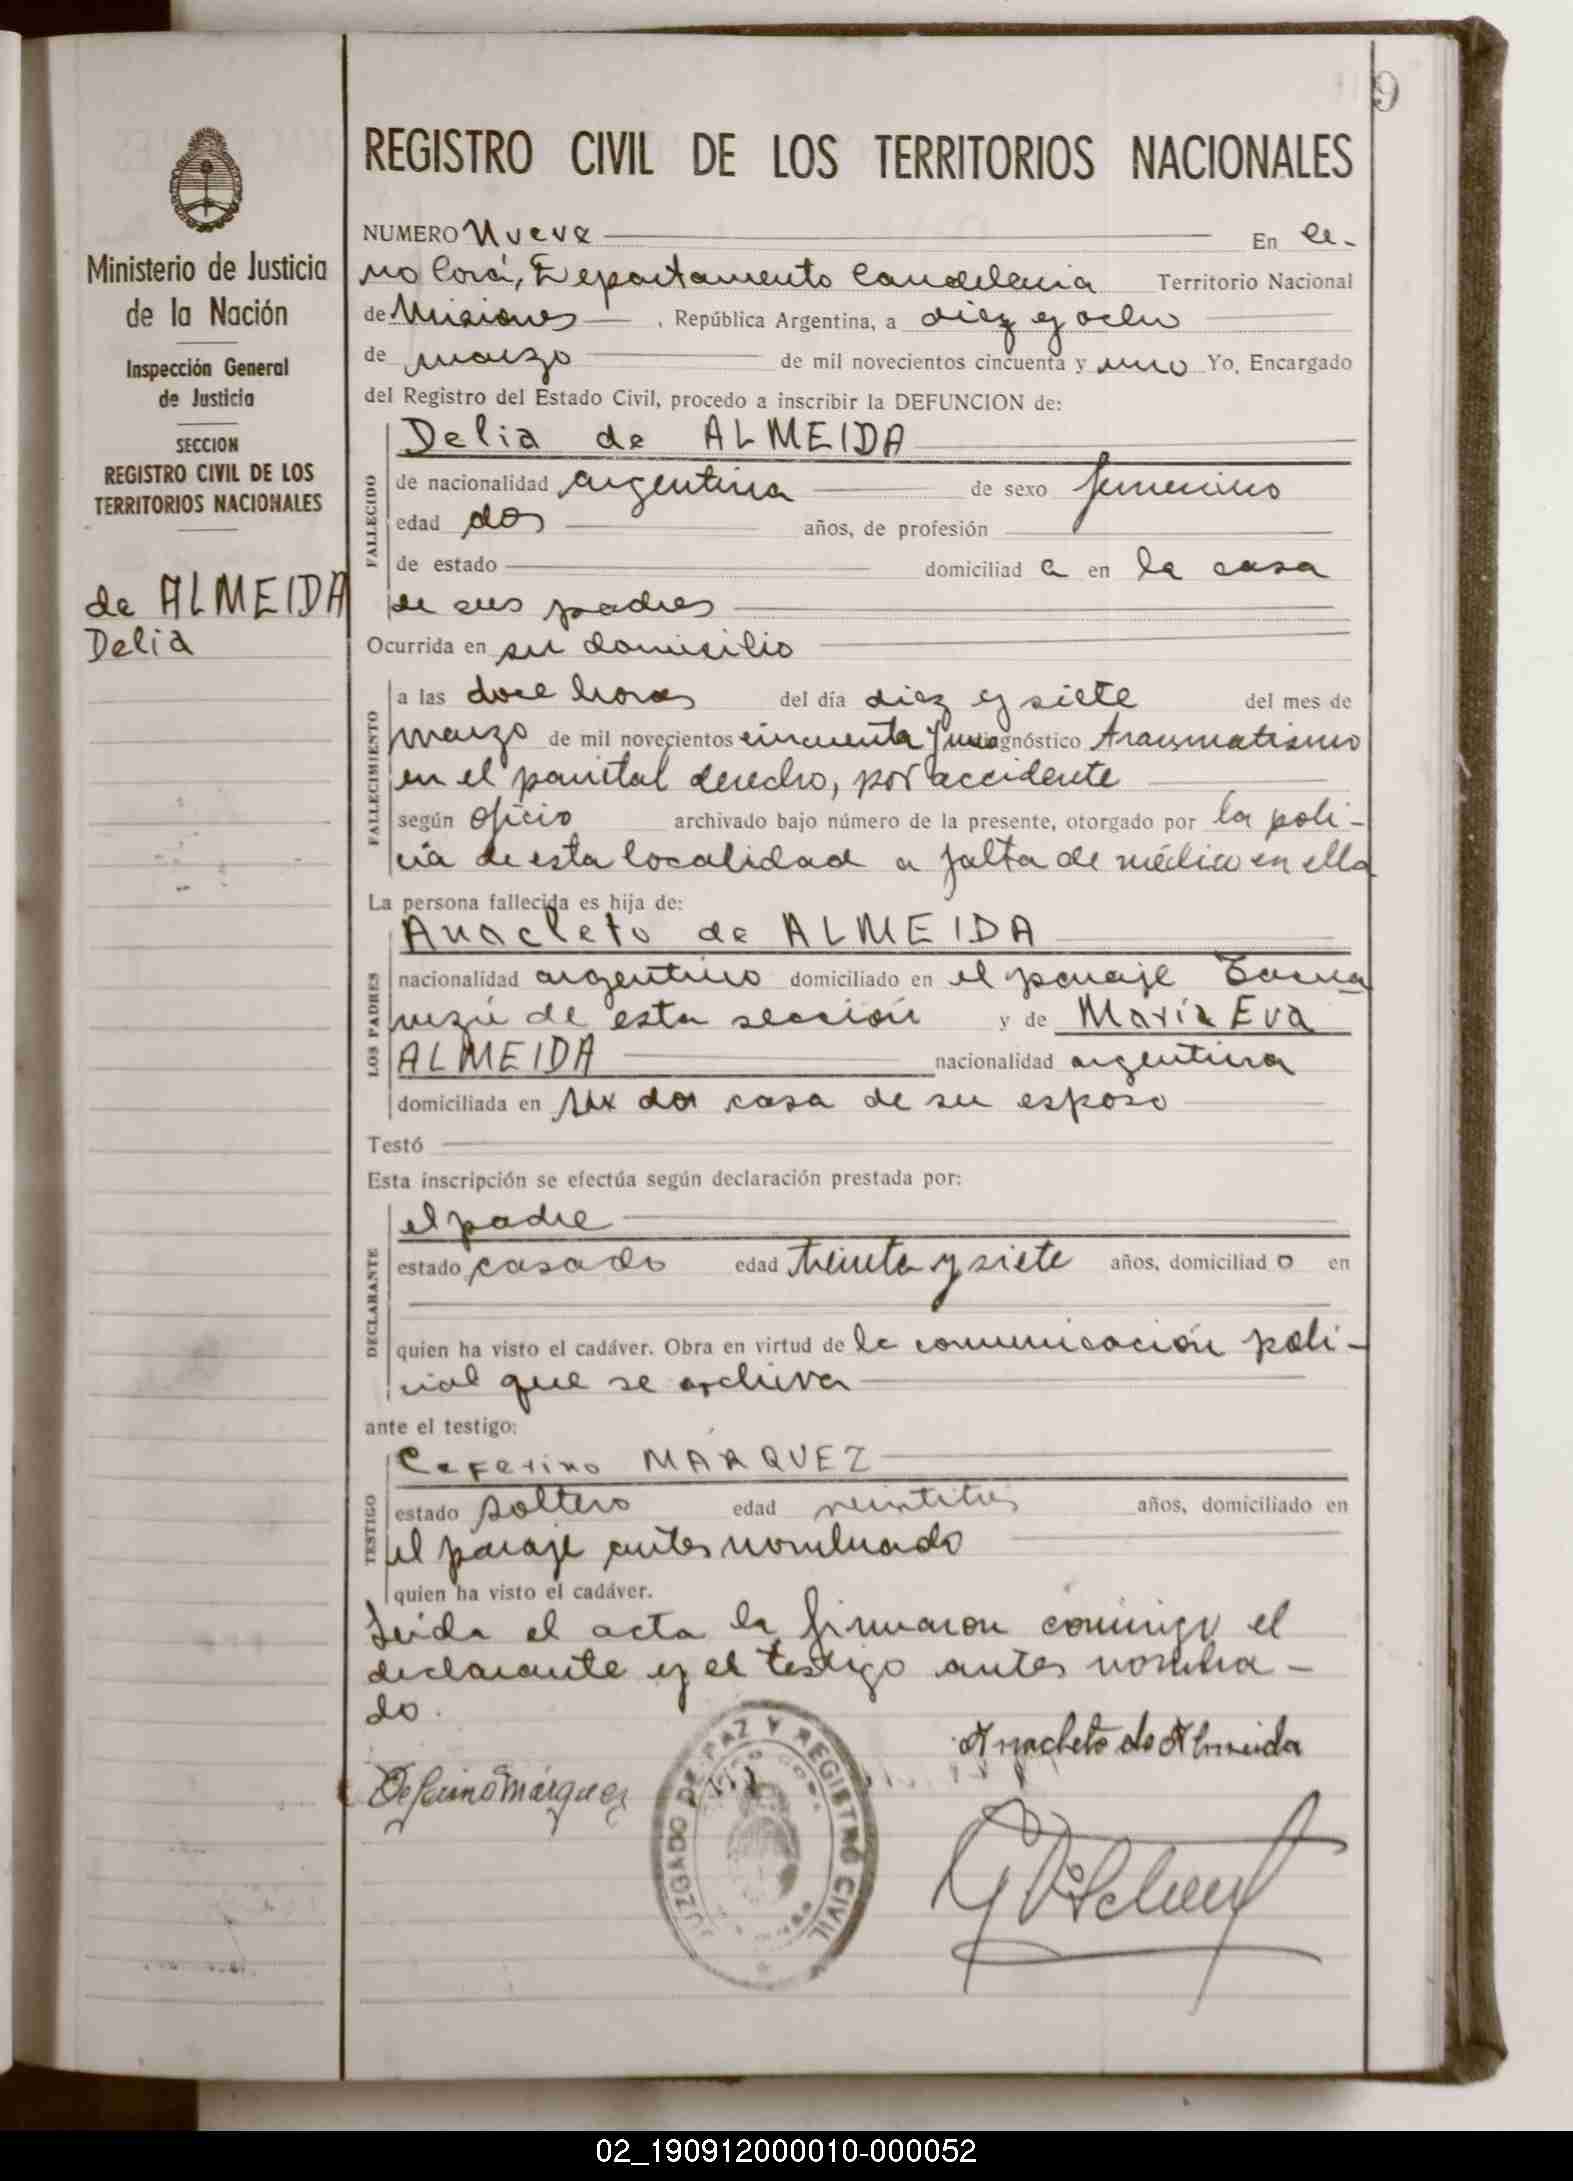 9
REGISTRO CIVIL DE LOS TERRITORIOS NACIONALES
Ministerio de Justicia
de la Nación
Inspección General
de Justicia
SECCION
REGISTRO CIVIL DE LOS
TERRITORIOS NACIONALES
de ALMEIDA
Delia
NUMERO Nueve En Ce-
rro Corá, Departamento Candelaria Territorio Nacional
de Misiones, República Argentina, a diez y ocho
de marzo de mil novecientos cincuenta y uno Yo, Encargado
del Registro del Estado Civil, procedo a inscribir la DEFUNCION de:
Delia de ALMEIDA
FALLECIDO
de nacionalidad argentina de sexo femenino
edad dos años, de profesión
de estado domiciliad a en la casa
de sus padres
Ocurrida en su domicilio
FALLECIMIENTO
a las doce horas del día diez y siete del mes de
marzo de mil novecientos cincuenta y uno diagnóstico traumatismo
en el parietal derecho, por accidente
según oficio archivado bajo número de la presente, otorgado por la poli-
cía de esta localidad a falta de médico en ella
La persona fallecida es hija de:
Anacleto de ALMEIDA
LOS PADRES
nacionalidad argentino domiciliado en el paraje
de esta sección y de María Eva
ALMEIDA nacionalidad argentina
domiciliada en casa de su esposo
Testó
Esta inscripción se efectúa según declaración prestada por:
el padre
DECLARANTE
estado casado edad treinta y siete años, domiciliad o en
quien ha visto el cadáver. Obra en virtud de la comunicación poli-
cial que se archiva
ante el testigo:
Ceferino MÁRQUEZ
TESTIGO
estado soltero edad veintitres años, domiciliado en
el paraje antes nombrado
quien ha visto el cadáver.
Leída el acta la firmaron conmigo el
declarante y el testigo antes nombra-
do.
Anacleto de Almeida
Seferino Márquez
JUZGADO DE PAZ Y REGISTRO CIVIL
02_190912000010-000052